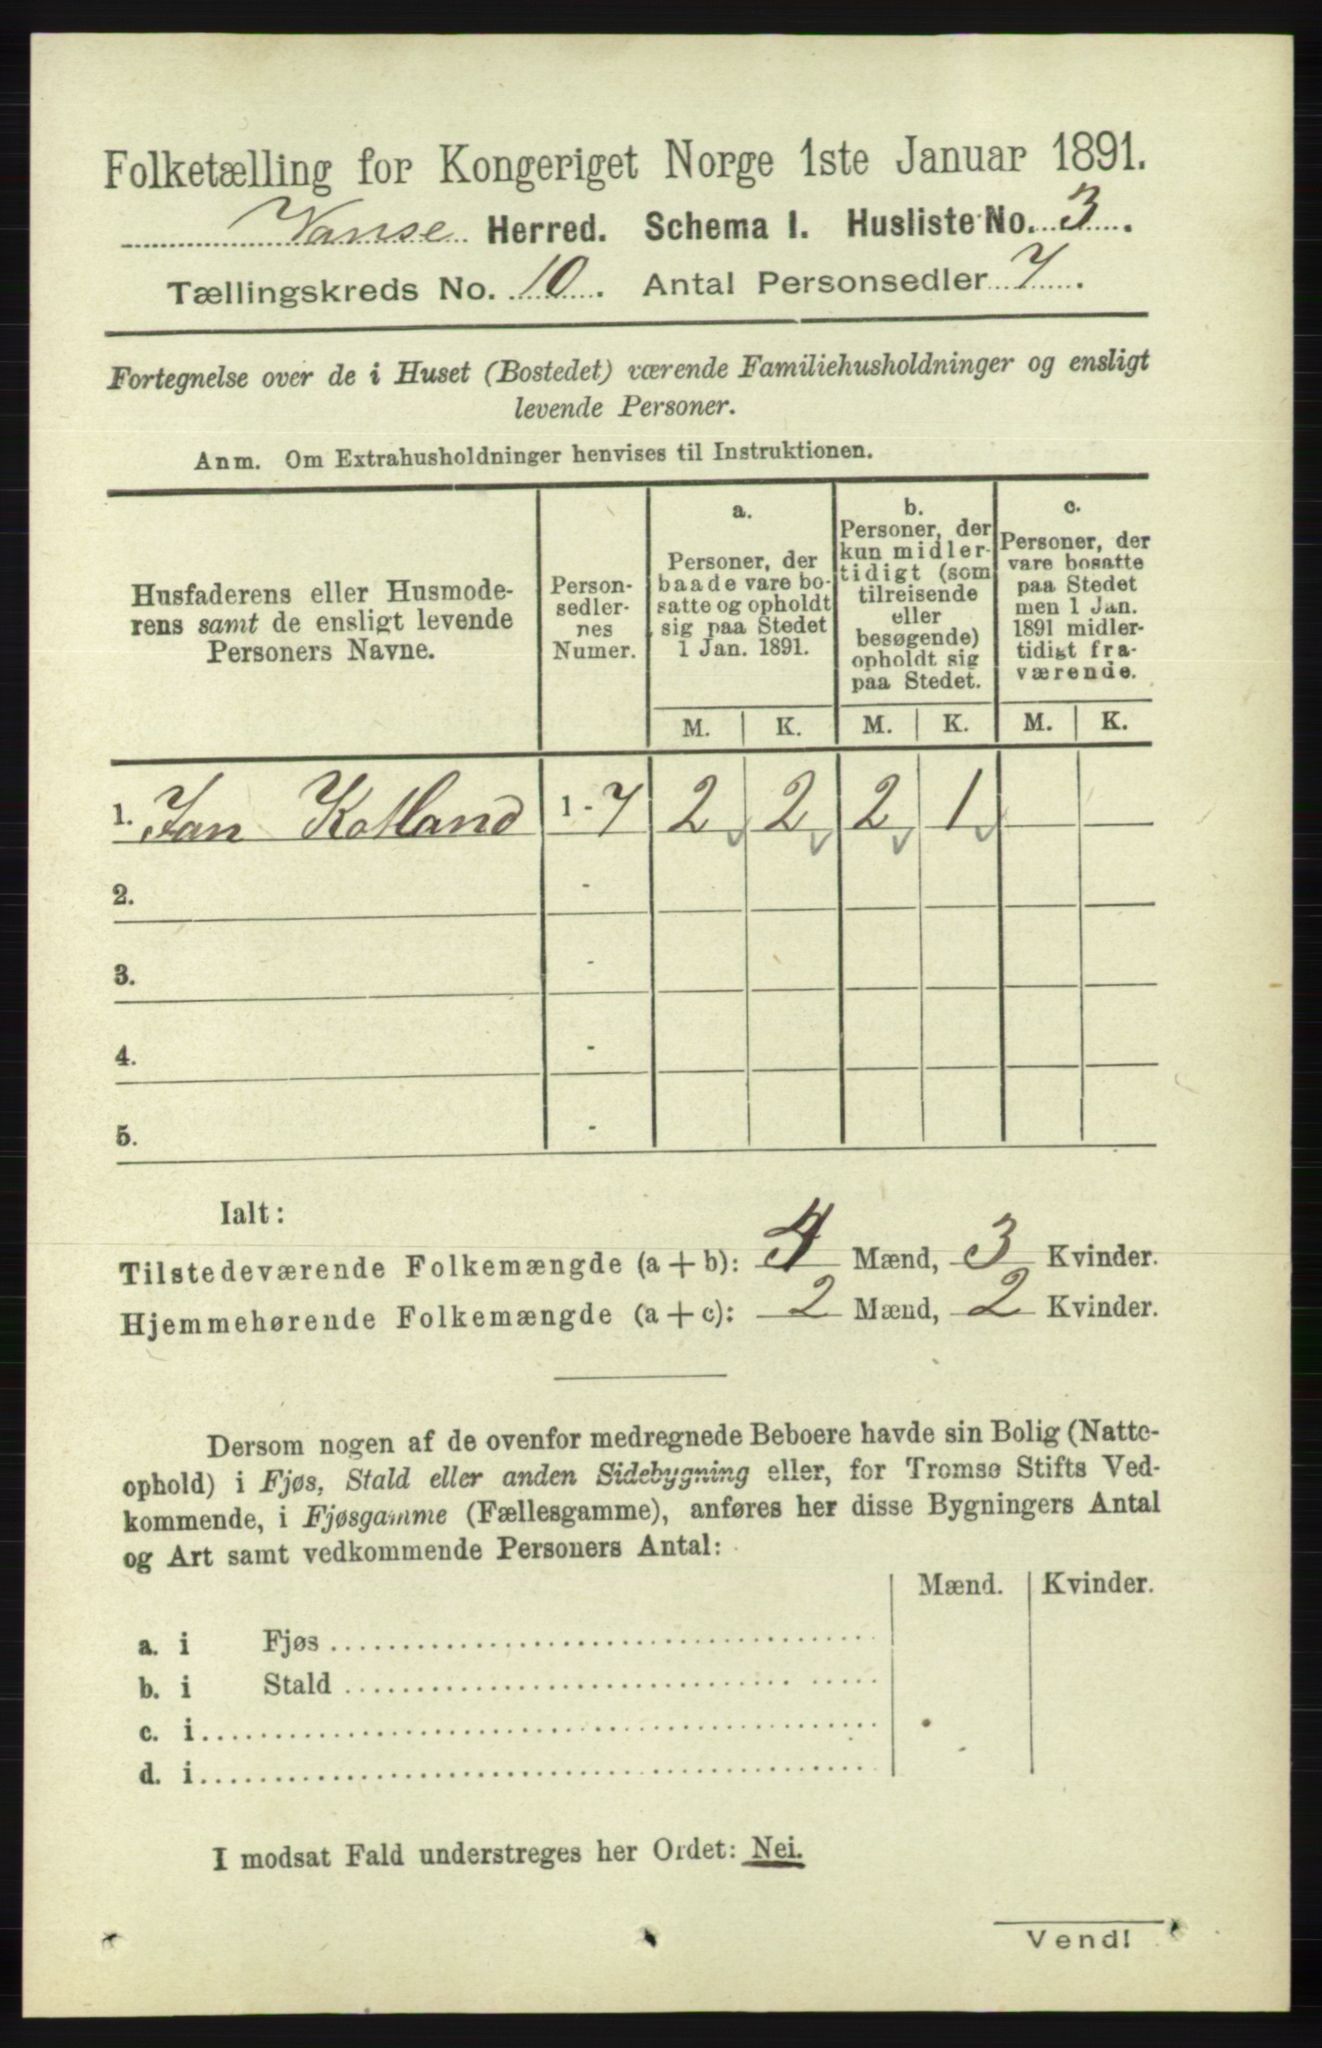 Folketælling for Kongeriget Norge 1ste Januar 1891.
Vanse Herred. Schema I. Husliste No. 3.
Tællingskreds No. 10. Antal Personsedler 7.
Fortegnelse over de i Huset (Bostedet) værende Familiehusholdninger og ensligt
levende Personer.
Anm. Om Extrahusholdninger henvises til Instruktionen.
Husfaderens eller Husmode-
rens samt de ensligt levende
Personers Navne.
Person-
sedler-
nes
Numer.
a.
Personer, der
baade vare bo-
satte og opholdt
sig paa Stedet
1 Jan. 1891.
b.
Personer, der
kun midler-
tidigt (som
tilreisende
eller
besøgende)
opholdt sig
paa Stedet.
c.
Personer, der
vare bosatte
paa Stedet
men 1 Jan.
1891 midler-
tidigt fra-
værende.
M. K. M. K. M. K.
1. Jan Kotland 1-7 2 2 2 1
2. -
3. -
4. -
5. -
Ialt:
Tilstedeværende Folkemængde (a + b): 4 Mænd, 3 Kvinder.
Hjemmehørende Folkemængde (a + c): 2 Mænd, 2 Kvinder.
Dersom nogen af de ovenfor medregnede Beboere havde sin Bolig (Natte-
ophold) i Fjøs, Stald eller anden Sidebygning eller, for Tromsø Stifts Ved-
kommende, i Fjøsgamme (Fællesgamme), anføres her disse Bygningers Antal
og Art samt vedkommende Personers Antal:
Mænd. Kvinder.
a. i Fjøs
b. i Stald
c. i
d. i
I modsat Fald understreges her Ordet: Nei.
Vend!